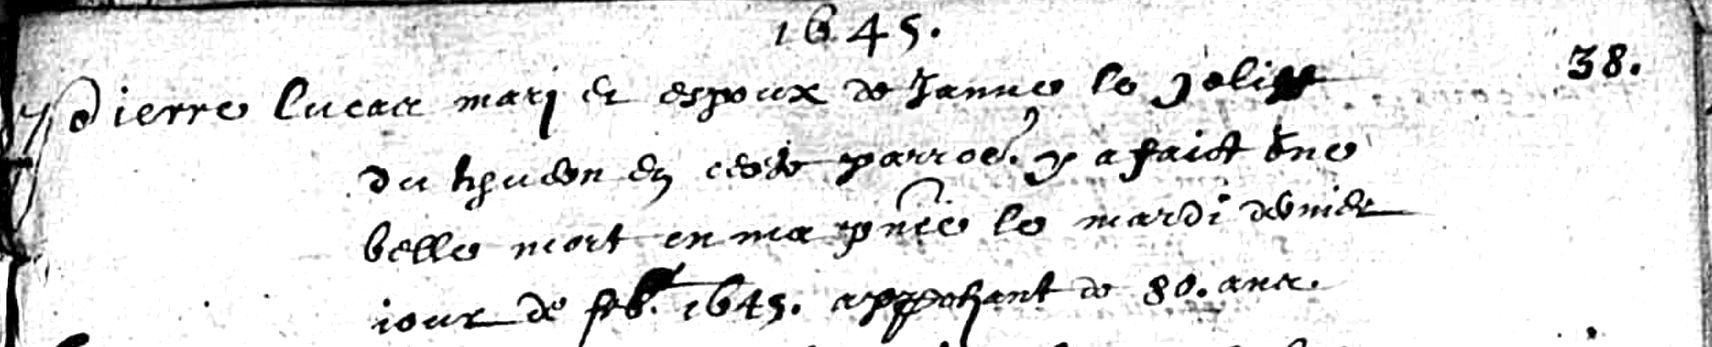 1645.
38.
Pierre lucas mary et espoux de Janne le Joliff
du en ceste parroe. y a faict une
belle mort en ma pnce le mardi dernier
jour de feb. 1645. approchant de 80. ans.